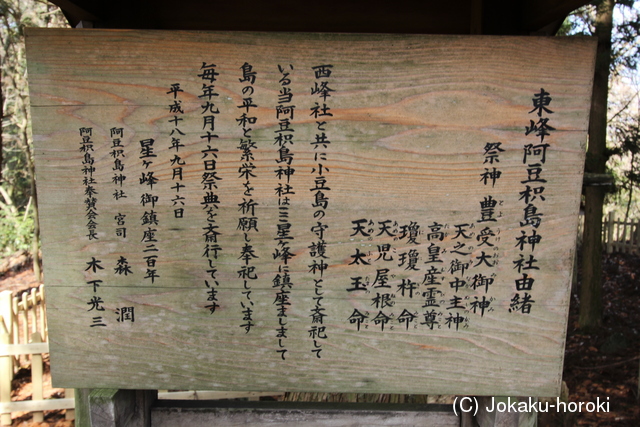 東峰阿豆枳島神社由緒
祭神 豊受大御神
天之御中主神
高皇産霊尊
瓊瓊杵命
天児屋根命
天太玉命
西峰社と共に小豆島の守護神として斎祀して
いる当阿豆枳島神社は三星ヶ峰に鎮座ましまして
島の平和と繁栄を祈願し奉祀しています
毎年九月十六日祭典を斎行しています
平成十八年九月十六日
星ヶ峰御鎮座二百年
阿豆枳島神社 宮司 森 潤
阿豆枳島神社奉賛会会長 木下光三
(C) Jokaku-horoki